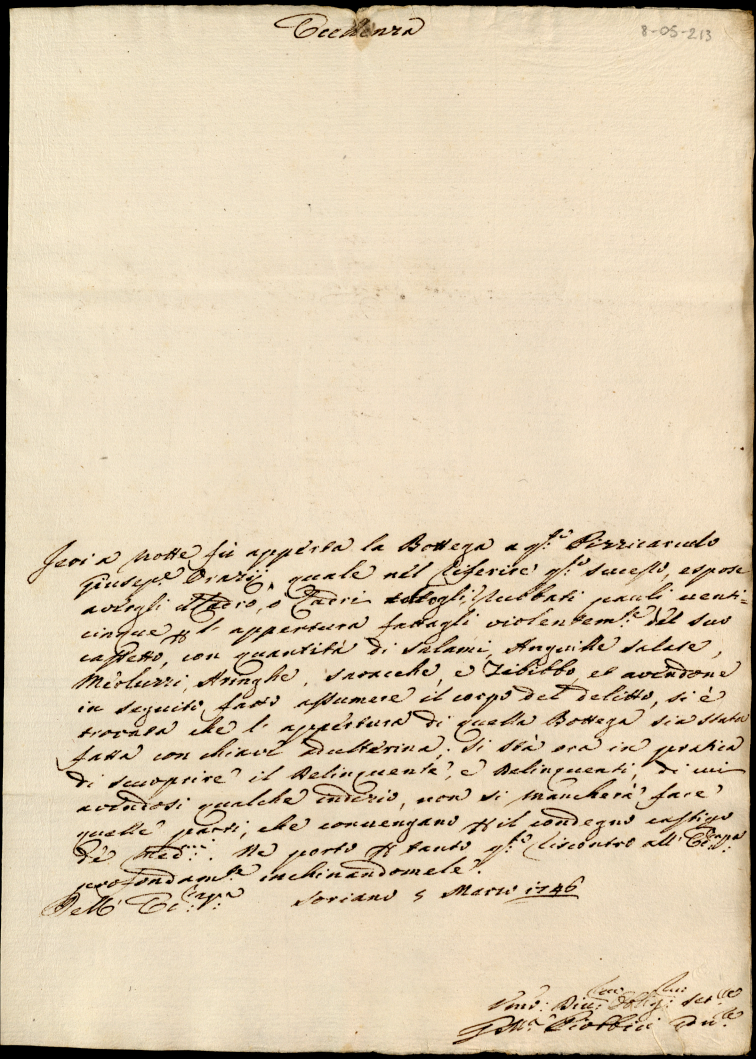 Eccellenza
8-05-213
Jeri a notte fù apperta la Bottega a q.to Pizzicarolo
Giusep.e Orazij, quale nel riferire q.to sucesso, espose
avergli il Ladro, o Ladri rubbati pauli venti=
cinque p l'appertura fattagli violentem.te del suo
cassetto, con quantità di salami, Anguille salate,
Merluzzi, Aringhe, saracche, e Zibibbo, et avendone
in seguito fatto assumere il corpo del delitto, si è
trovata che l'appertura di quella Bottega sia stata
fatta con chiave adulterina; Si stà ora in pratica
di scuoprire il Delinquente, e Delinquenti, di cui
avendosi qualche indizio, non si mancherà fare
quelle parti, che convengano p il condegno castigo
de Med.mi. Ne porto p tanto q.to riscontro all' Ecc.za V.ra
profondam.te inchinandomele.
Dell' Ecc.za V.ra Soriano 5 Marzo 1746